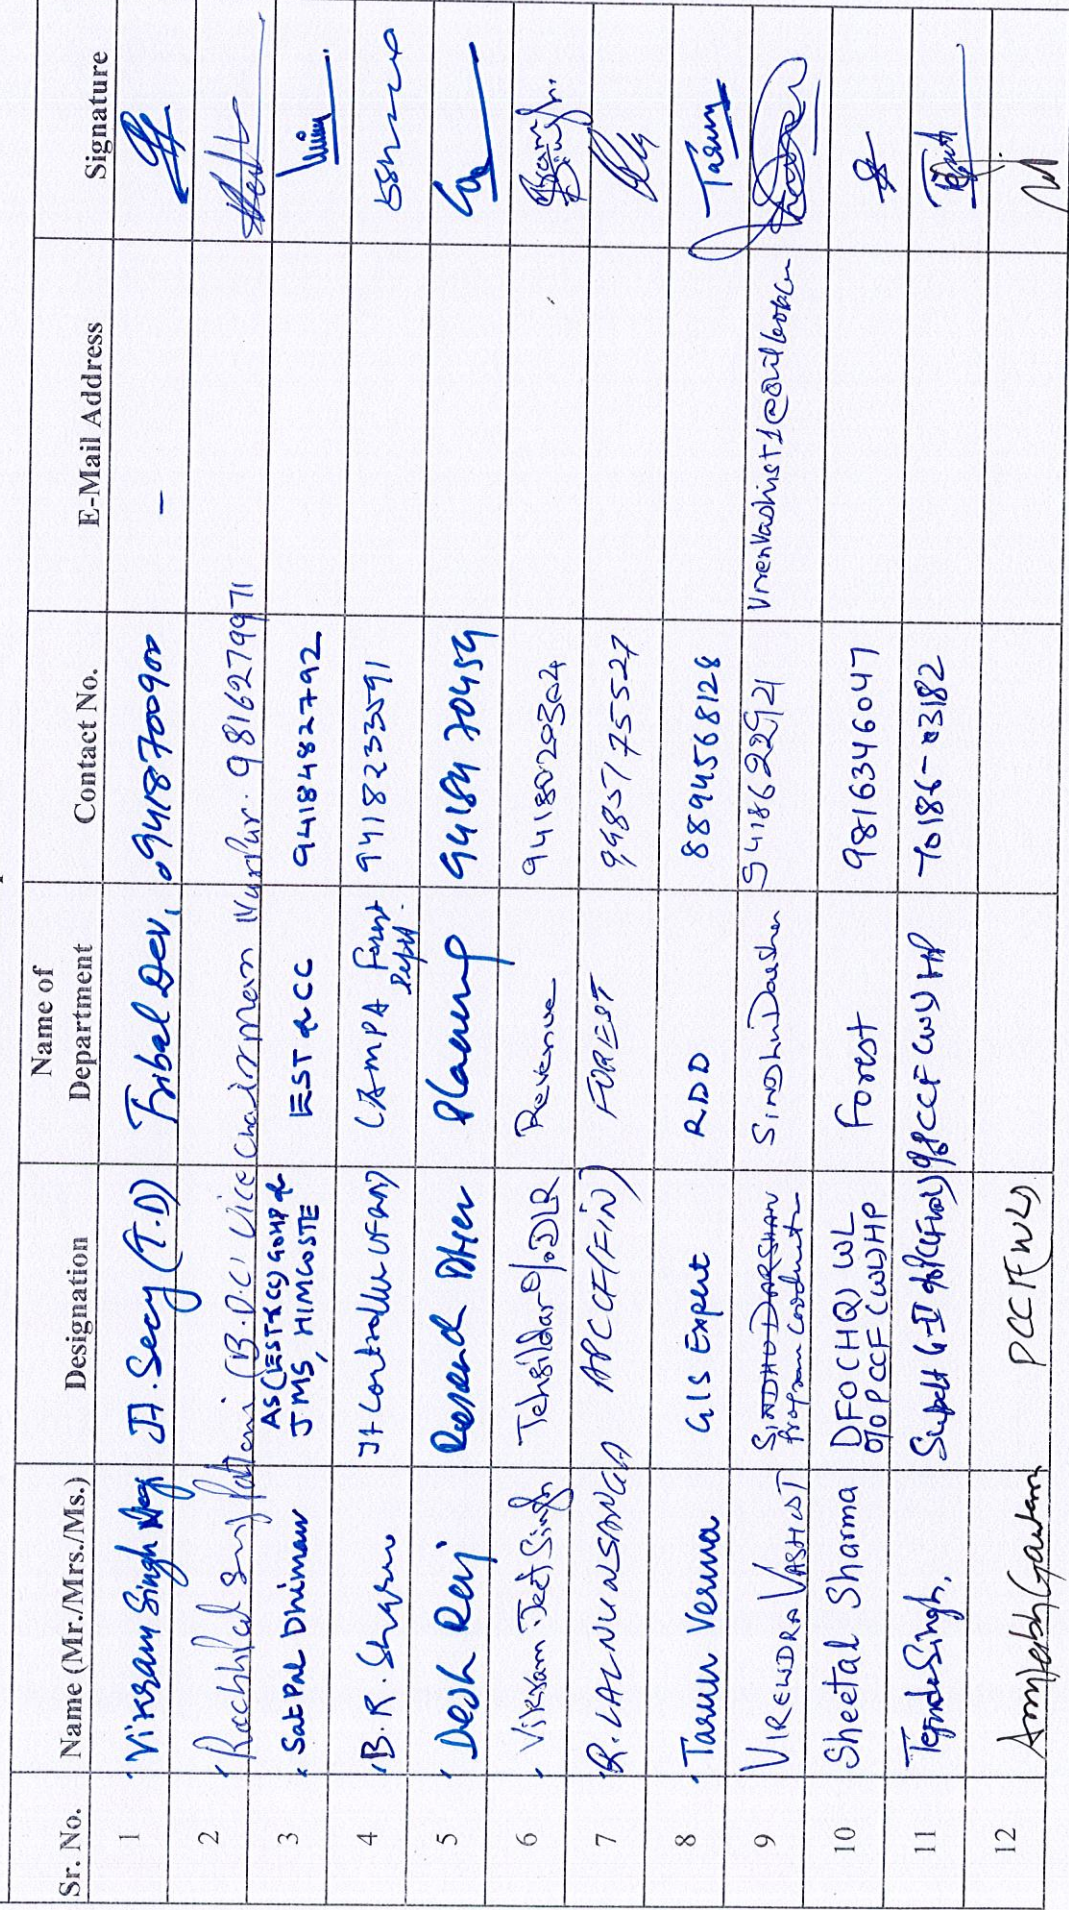 Sr. No. Name (Mr./Mrs./Ms.) Designation Name of Department Contact No. E-Mail Address Signature
1 Vikram Singh Negi Jt. Secy (T.D) Tribal Dev. 9418700900 -
2 Rachhpal Singh Pathania (B.D.C) Vice Chairman Nurpur. 9816279971
3 Sat Pal Dhiman AS(EST&CC) GOHP & JMS, HIMCOSTE EST & CC 9418482792
4 B.R. Sharma Jt Controller (F&A) CAMPA Forest Deptt. 9418233591
5 Desh Raj Research Officer Planning 9418470459
6 Vikram Jeet Singh Tehsildar O/o DLR Revenue 9418020302
7 R. LALNUNSANGA APCCF (FIN) FOREST 9485175527
8 Tarun Verma GIS Expert RDD 8894568128 Tarun
9 VIRENDRA VASHIST SINDHU DARSHAN Program Coordinator Sindhu Darshan 9418622921
10 Sheetal Sharma DFO (HQ) WL O/o PCCF (WL) HP Forest 9816346047
11 Singh, Supdt G-II O/o PCCF (WL) O/o PCCF (WL) HP 70186-03182
12 Amitabh Gautam PCCF (WL)